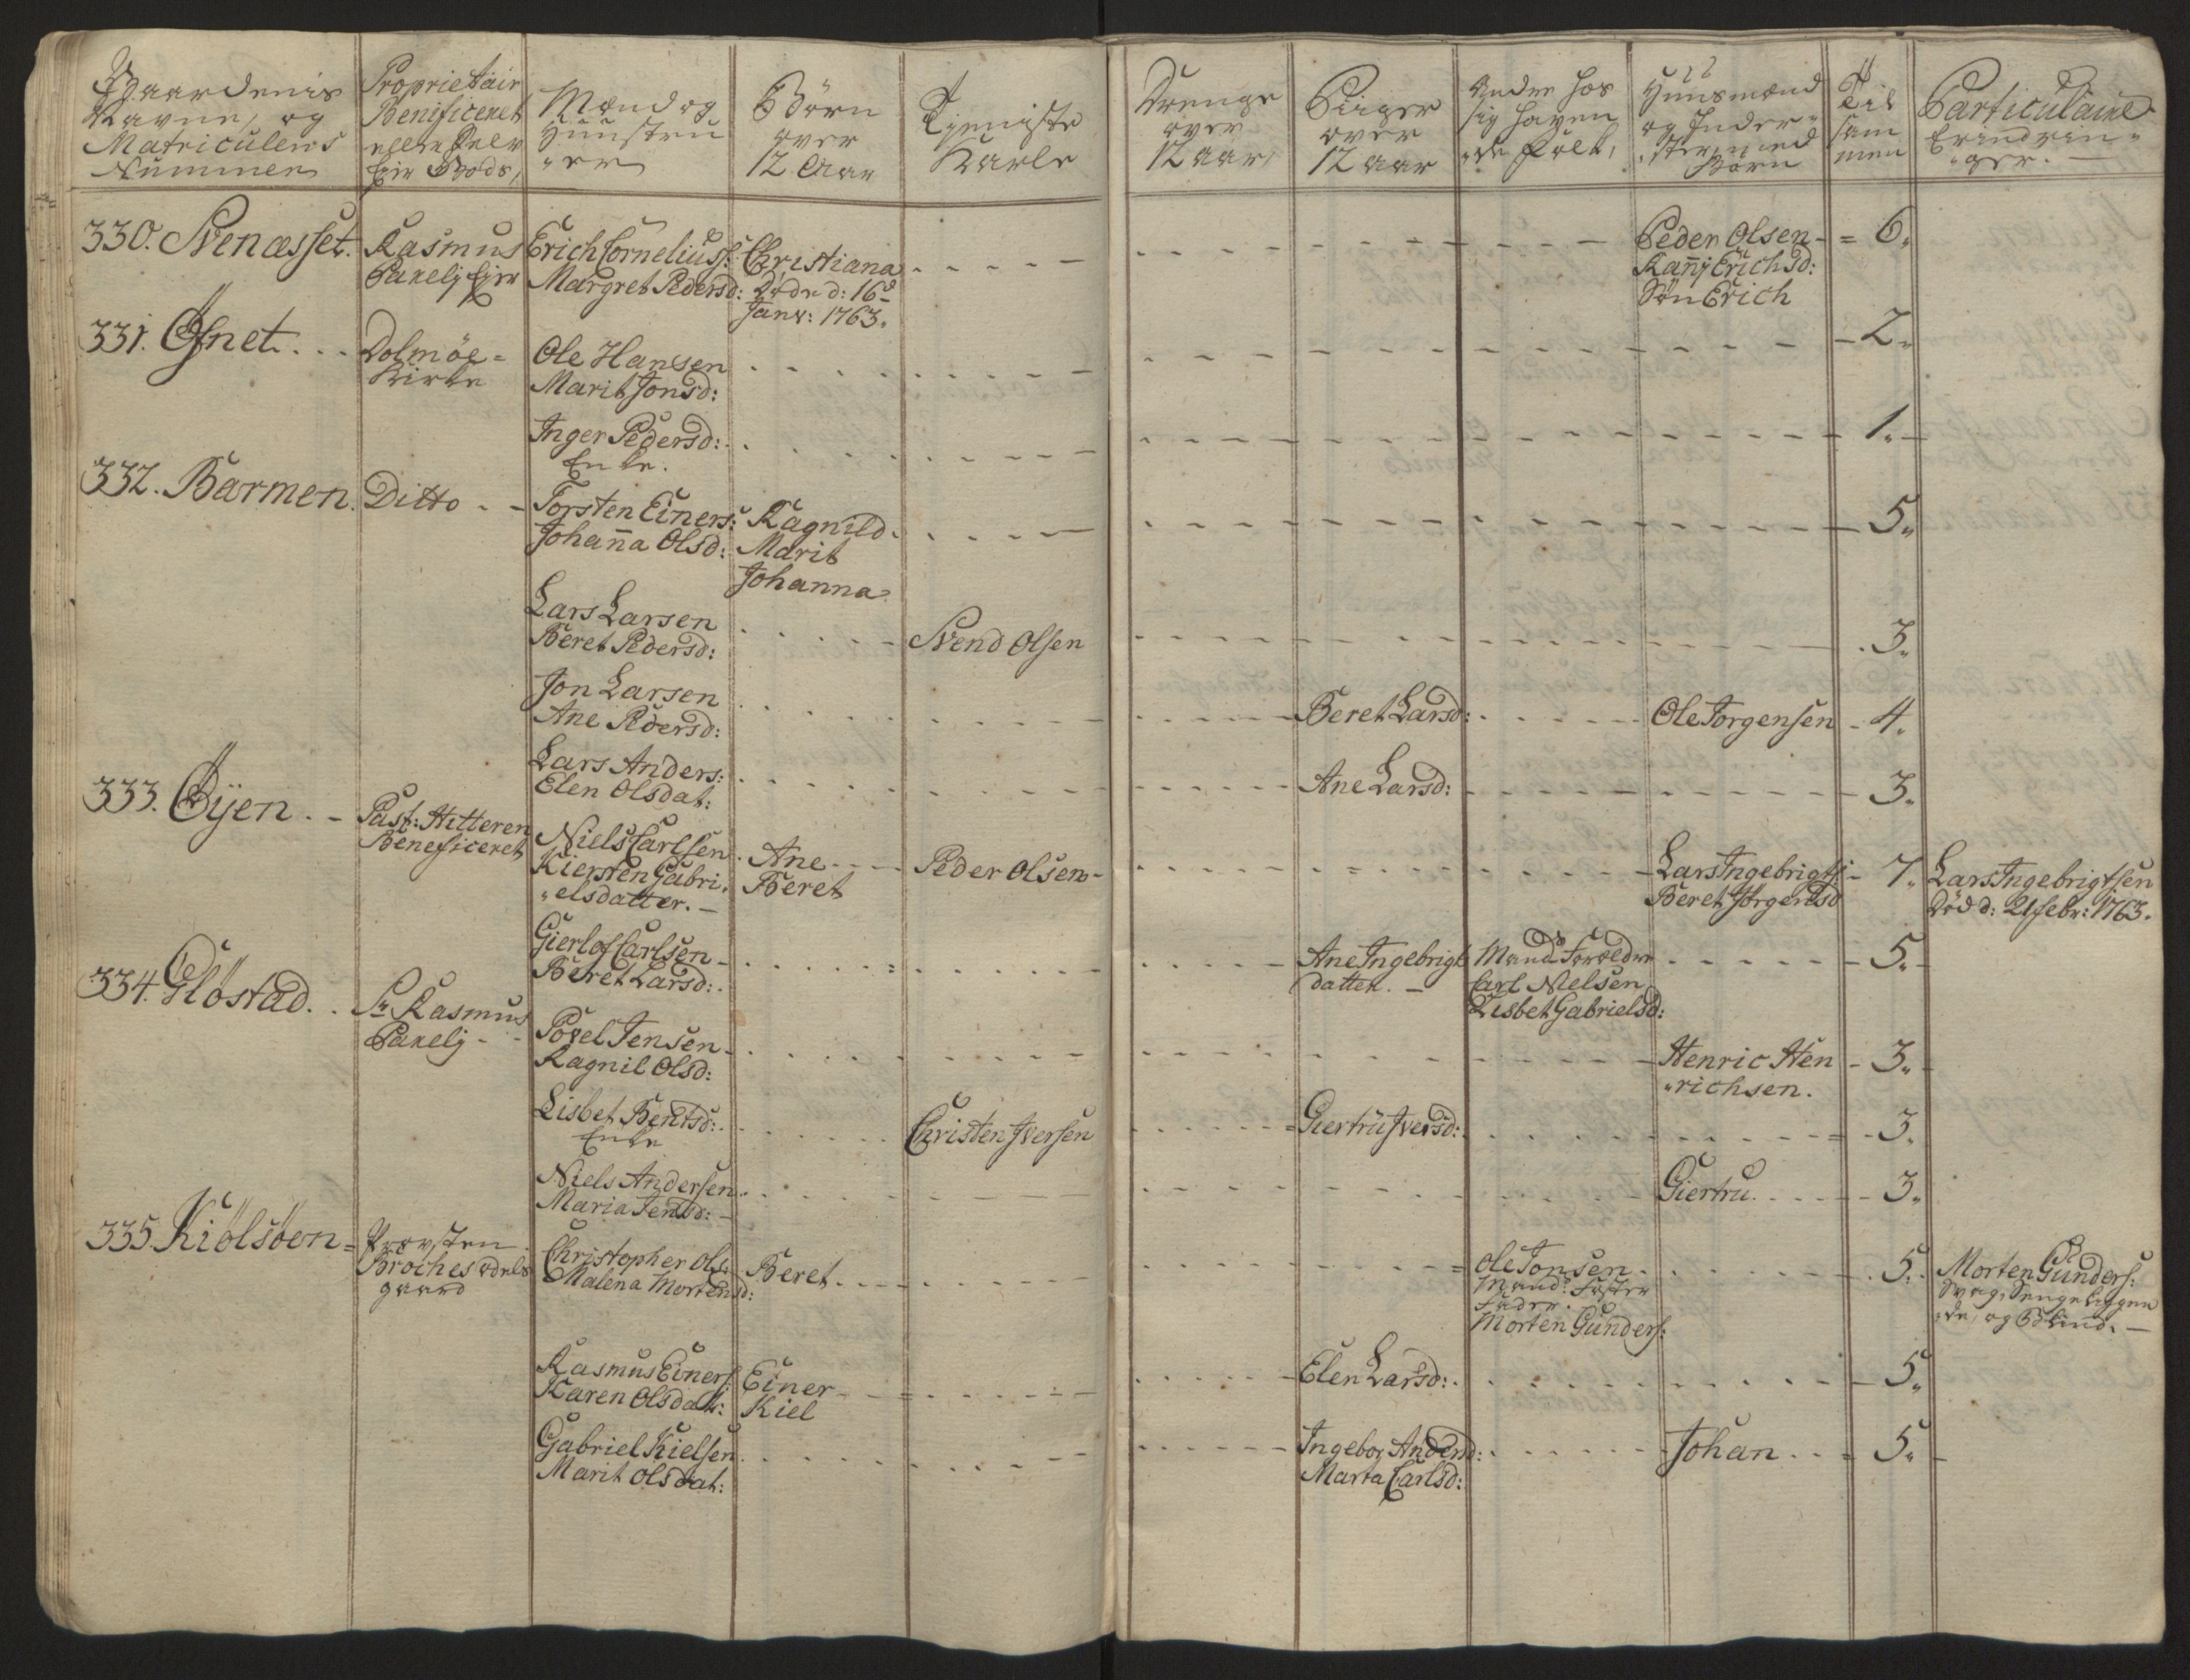 Gaardenis
Navne, og
Matriculens
Nummer
Proprietair
Benificeret
eller Selv
Eir Gods,
Mænd og
Hünstru
"er
Börn
over
12 Aar
Tjeniste
Karle
Drenge
over
12 aar,
Piiger
over
12 aar
Andre hos
sig haven
"de folk,
Huusmænd
og Inder"
"ster, med
Börn
Til
sam
men
Particulaire
Erindrin"
"ger. —
330. Svenæsset.
Rasmus
Parelj Ejer
Erich Corneliuss:
Margret Pedersd:
Christiana
Döde d: 16d
Janv: 1763.
Peder Olsen
Kanj Erichsd:
Sön Erich
6.
331. Öfnet...
Dolmöe=
Kirke
Ole Hansen
Marit Jonsd:
2.
Inger Pedersd:
Enke.
1.
332. Barmen.
Ditto
Torsten Einers:
Johanna Olsd:
Ragnild
Marit
Johanna
5.
Lars Larsen
Beret Pedersd:
Svend Olsen
3.
Jon Larsen
Ane Pedersd:
Beret Larsd:
Ole Torgensen
4.
Lars Anders:
Elen Olsdat:
Ane Larsd:
3.
333. Öÿen
Past: Hitteren
Beneficeret
Niels Carlsen
Kiersten Gabri"
"elsdatter. —
Ane
Beret
Peder Olsen
Lars Ingebrigts:
Beret Jörgensd
7.
Lars Ingebrigtsen
Död d: 21 febr: 1763.
Gierlof Carlsen
Beret Larsd:
Ane Ingebrigts
datter. —
Mands Foreldre
Carl Nielsen
Lisbet Gabrielsd:
5.
334. Gløstad.
Sr Rasmus
Parelj
Povel Jensen
Ragnil Olsd:
Henric Hen
"richsen.
3.
Lisbet Bentsd:
Enke
Christen Iversen
Giertru Iversd:
3.
Niels Andersen
Maria Jensd:
Giertru.
3.
335. Kiölsöen
Provsten
Broches ædels
gaard
Christopher Ols:
Malena Mortensd:
Beret
Ole Jonsen
Mands: Foster
Fader.
Morten Gunders:
5.
Morten Gunders:
Svag, Sengeliggen
"de, og Blind. —
Rasmus Einers:
Karen Olsdat:
Einer
Kiel
Elen Larsd:
5.
Gabriel Kielsen
Marit Olsdat:
Ingebor Andersd:
Marta Carlsd:
Johan
5.